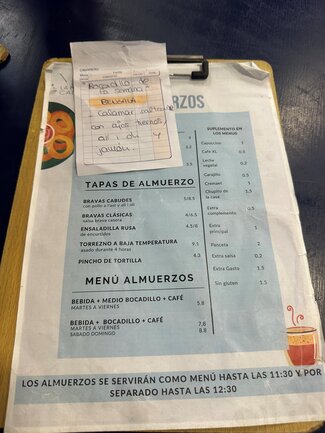 Bocadillo de
la semana
BELUSHIA
Calamar
con ajos tiernos,
ali i oli y
UERZOS
SUPLEMENTO EN
LOS MENUS
Capuccino 1
Cafe XL 0.5
Leche
vegetal 0.2
Carajillo 0.5
Cremaet 1
Chupito de
la casa 1.5
Extra
complemento 0.5
Extra
principal 1
Panceta 2
Extra salsa 0.2
Extra Gasto 1.5
Sin gluten 1.5
TAPAS DE ALMUERZO
BRAVAS CABUDES 5/8.5
con pollo a l'ast y all i oli
BRAVAS CLÁSICAS 4/6.5
salsa brava casera
ENSALADILLA RUSA 4.5/8
de encurtidos
TORREZNO A BAJA TEMPERATURA 9.5
asado durante 4 horas
PINCHO DE TORTILLA 4.3
MENÚ ALMUERZOS
BEBIDA + MEDIO BOCADILLO + CAFÉ 5.8
MARTES A VIERNES
BEBIDA + BOCADILLO + CAFÉ 7,8
MARTES A VIERNES 8.8
SABADO DOMINGO
LOS ALMUERZOS SE SERVIRÁN COMO MENÚ HASTA LAS 11:30 Y POR
SEPARADO HASTA LAS 12:30